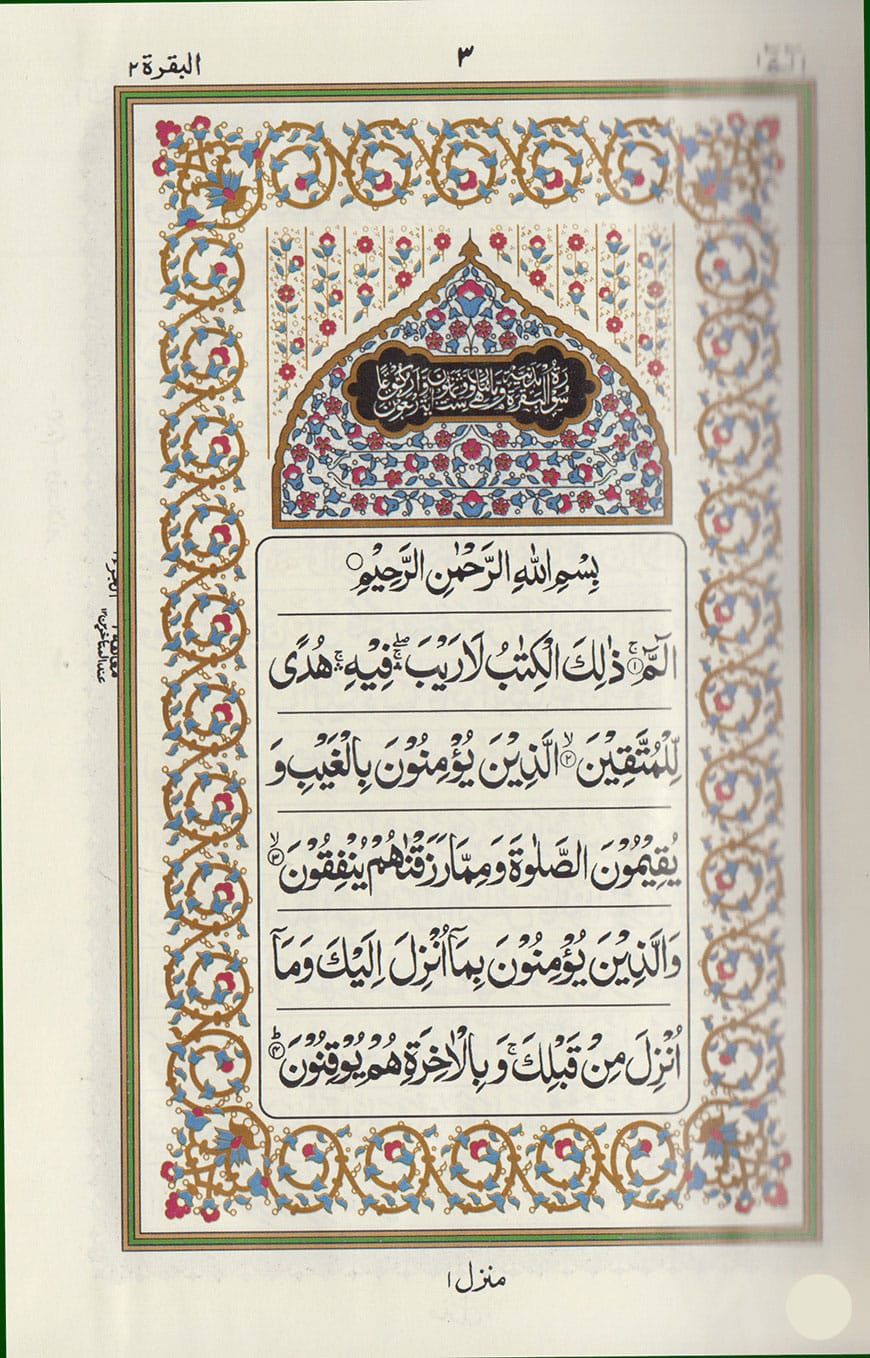 البقرة ٢
٣
الٓمّٓ ١
سورة البقرة مدنية
بِسْمِ اللّٰهِ الرَّحْمٰنِ الرَّحِيْمِ ۝
الٓمّٓ ۚ﴿۱﴾ ذٰلِكَ الْكِتٰبُ لَا رَيْبَ ۛۖ فِيْهِ ۛۚ هُدًى
لِّلْمُتَّقِيْنَ ۙ﴿۲﴾ الَّذِيْنَ يُؤْمِنُوْنَ بِالْغَيْبِ وَ
يُقِيْمُوْنَ الصَّلٰوةَ وَمِمَّا رَزَقْنٰهُمْ يُنْفِقُوْنَ ۙ﴿۳﴾
وَالَّذِيْنَ يُؤْمِنُوْنَ بِمَآ اُنْزِلَ اِلَيْكَ وَمَآ
اُنْزِلَ مِنْ قَبْلِكَ ۚ وَ بِالْاٰخِرَةِ هُمْ يُوْقِنُوْنَ ؕ﴿۴﴾
منزل ١